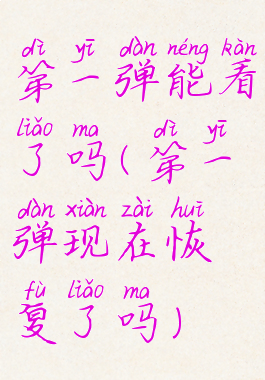 dì yī dàn néng kàn
第一弹能看
liǎo ma dì yī
了吗(第一
dàn xiàn zài huī
弹现在恢
fù liǎo ma
复了吗)